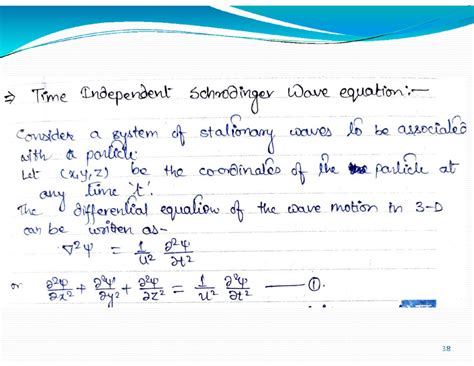 ⇒ Time Independent Schrodinger Wave equation:-
Consider a system of stationary waves to be associated
with a particle.
Let (x,y,z) be the coordinates of the particle at
any time 't'.
The differential equation of the wave motion in 3-D
can be written as-
∇²ψ = 1/u² ∂²ψ/∂t²
or ∂²ψ/∂x² + ∂²ψ/∂y² + ∂²ψ/∂z² = 1/u² ∂²ψ/∂t² — ①.
38